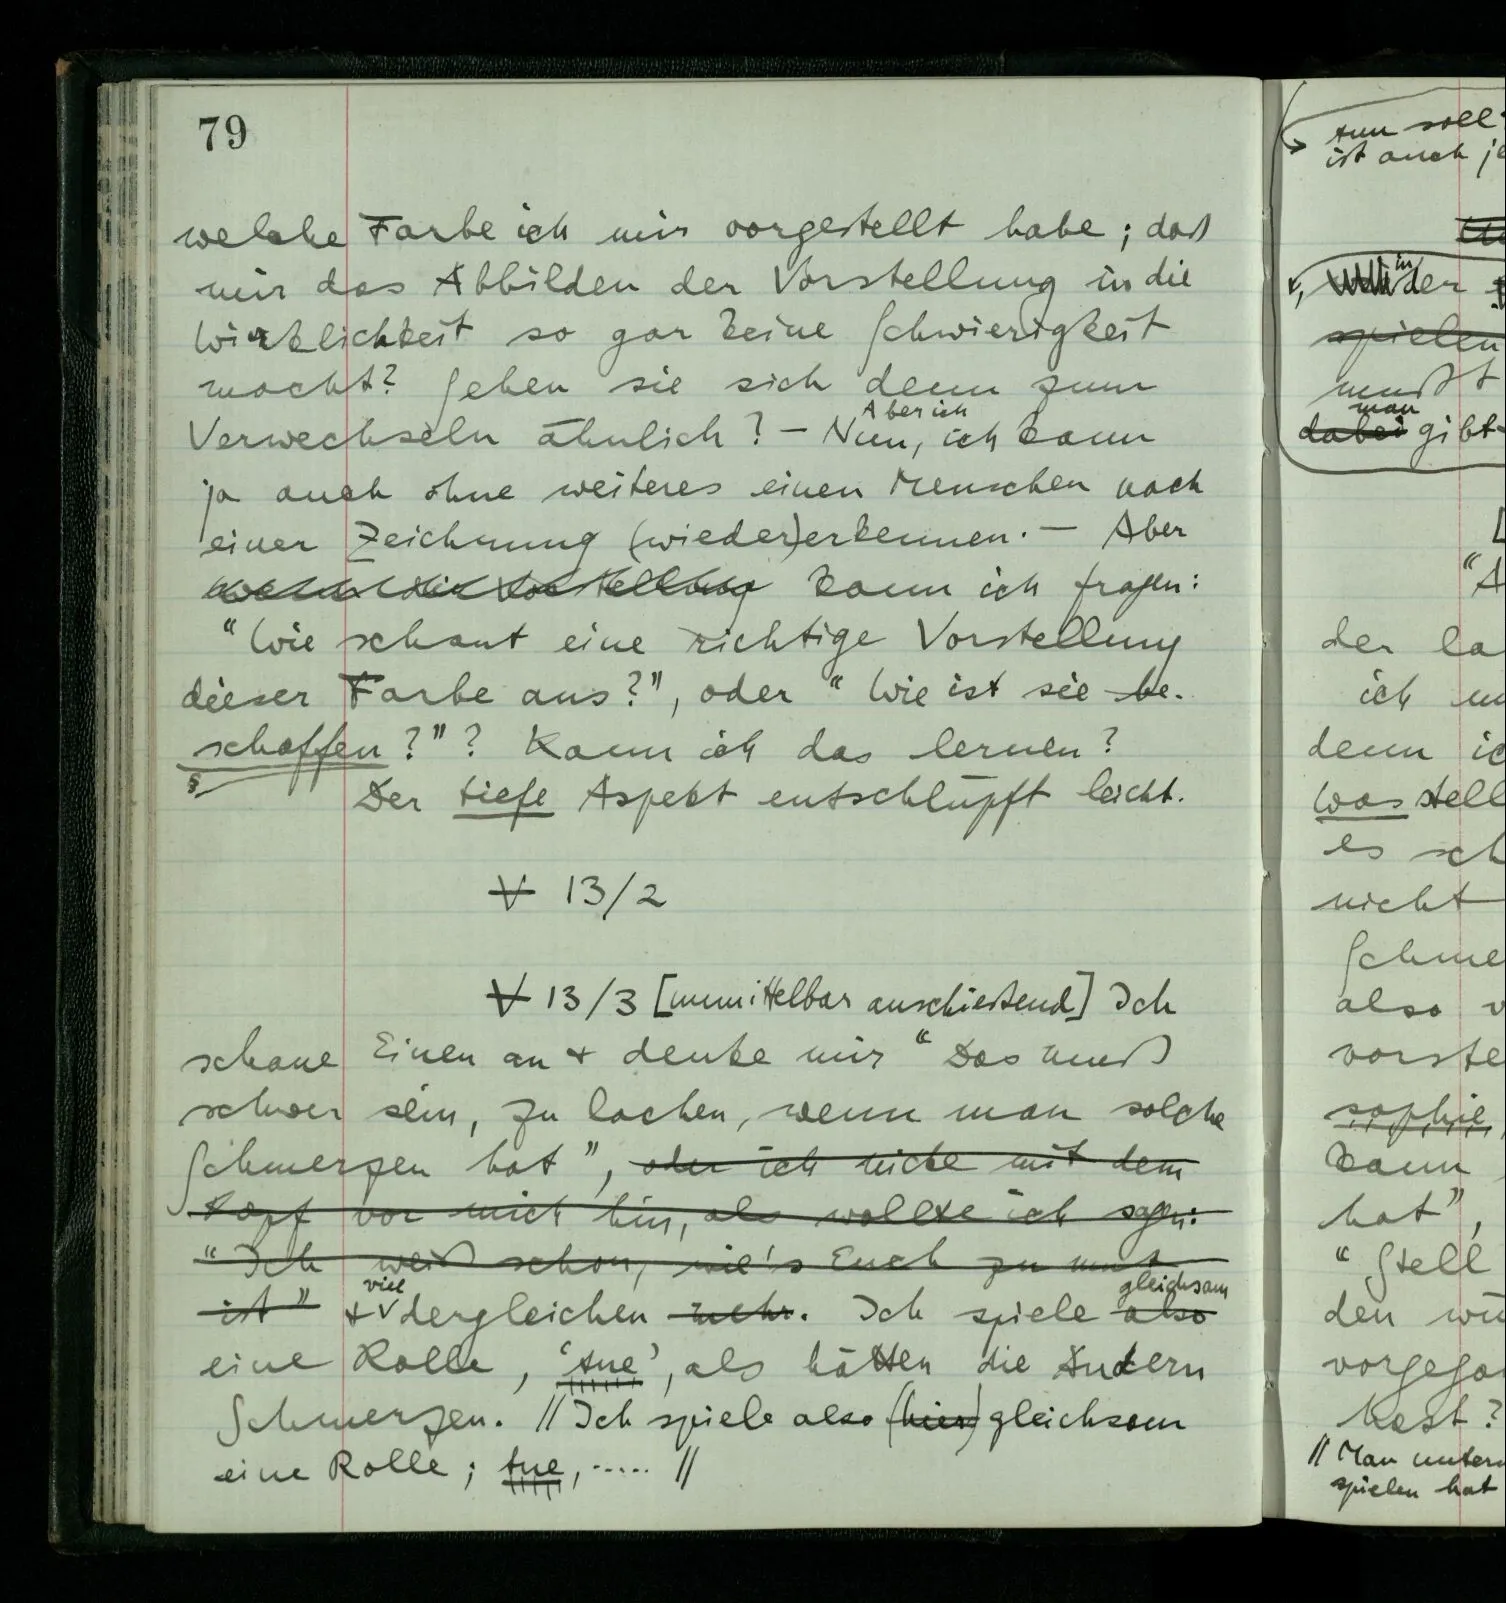 79
welche Farbe ich mir vorgestellt habe; daß
mir das Abbilden der Vorstellung in die
Wirklichkeit so gar keine Schwierigkeit
macht? Sehen sie sich denn zum
Aber ich
Verwechseln ähnlich? – Nun, ich kann
ja auch ohne weiteres einen Menschen nach
einer Zeichnung (wieder)erkennen. – Aber
wenn die Vorstellung kann ich fragen:
"Wie schaut eine richtige Vorstellung
dieser Farbe aus?", oder "Wie ist sie be-
schaffen?"? Kann ich das lernen?
s
Der tiefe Aspekt entschlüpft leicht.
V 13/2
V 13/3 [unmittelbar anschließend] Ich
schaue Einen an & denke mir "Das muß
schwer sein, zu lachen, wenn man solche
Schmerzen hat", oder ich nicke mit dem
Kopf vor mich hin, als wollte ich sagen:
"Ich weiß schon, wie's Euch zu mut
viel gleichsam
ist" & dergleichen mehr. Ich spiele also
eine Rolle, 'tue', als hätten die Andern
Schmerzen. // Ich spiele also (hier) gleichsam
eine Rolle; tue, ..... //
tun soll.
ist auch je
in
der
spielen
mußt
man
dabei gibt
"A
der la
ich
denn ic
Was stell
es sch
nicht
Schme
also v
vorste
sophie,
kann
hat",
"Stell
den wü
vorgega
hast?
// Man untern
spielen hat